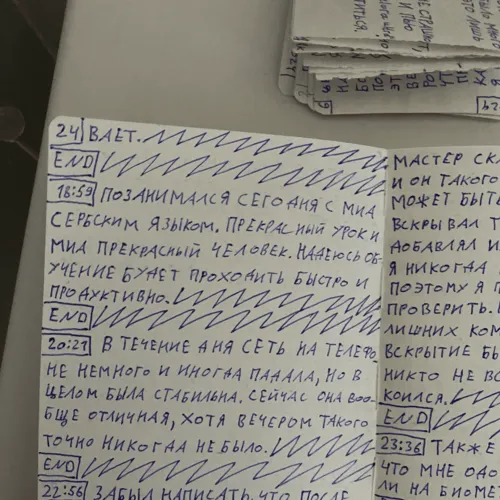 24 ВАЕТ.
END
18:59 ПОЗАНИМАЛСЯ СЕГОДНЯ С МИА
СЕРБСКИМ ЯЗЫКОМ. ПРЕКРАСНЫЙ УРОК И
МИА ПРЕКРАСНЫЙ ЧЕЛОВЕК. НАДЕЮСЬ ОБ-
УЧЕНИЕ БУДЕТ ПРОХОДИТЬ БЫСТРО И
ПРОДУКТИВНО.
END
20:21 В ТЕЧЕНИЕ ДНЯ СЕТЬ НА ТЕЛЕФО
НЕ НЕМНОГО И ИНОГДА ПАДАЛА, НО В
ЦЕЛОМ БЫЛА СТАБИЛЬНА. СЕЙЧАС ОНА ВОО-
БЩЕ ОТЛИЧНАЯ, ХОТЯ ВЕЧЕРОМ ТАКОГО
ТОЧНО НИКОГДА НЕ БЫЛО.
END
22:56 ЗАБЫЛ НАПИСАТЬ, ЧТО ПОСЛЕ
МАСТЕР СКА
И ОН ТАКОГО
МОЖЕТ БЫТЬ
ВСКРЫВАЛ Т
ДОБАВЛЯЛ И
Я НИКОГДА
ПОЭТОМУ Я П
ПРОВЕРИТЬ.
ЛИШНИХ КОМ
ВСКРЫТИЕ БЫ
НИКТО НЕ ВС
КОИЛСЯ.
END
23:36 ТАКЖЕ
ЧТО МНЕ ОДО
ЛИ НА БИОМЕ